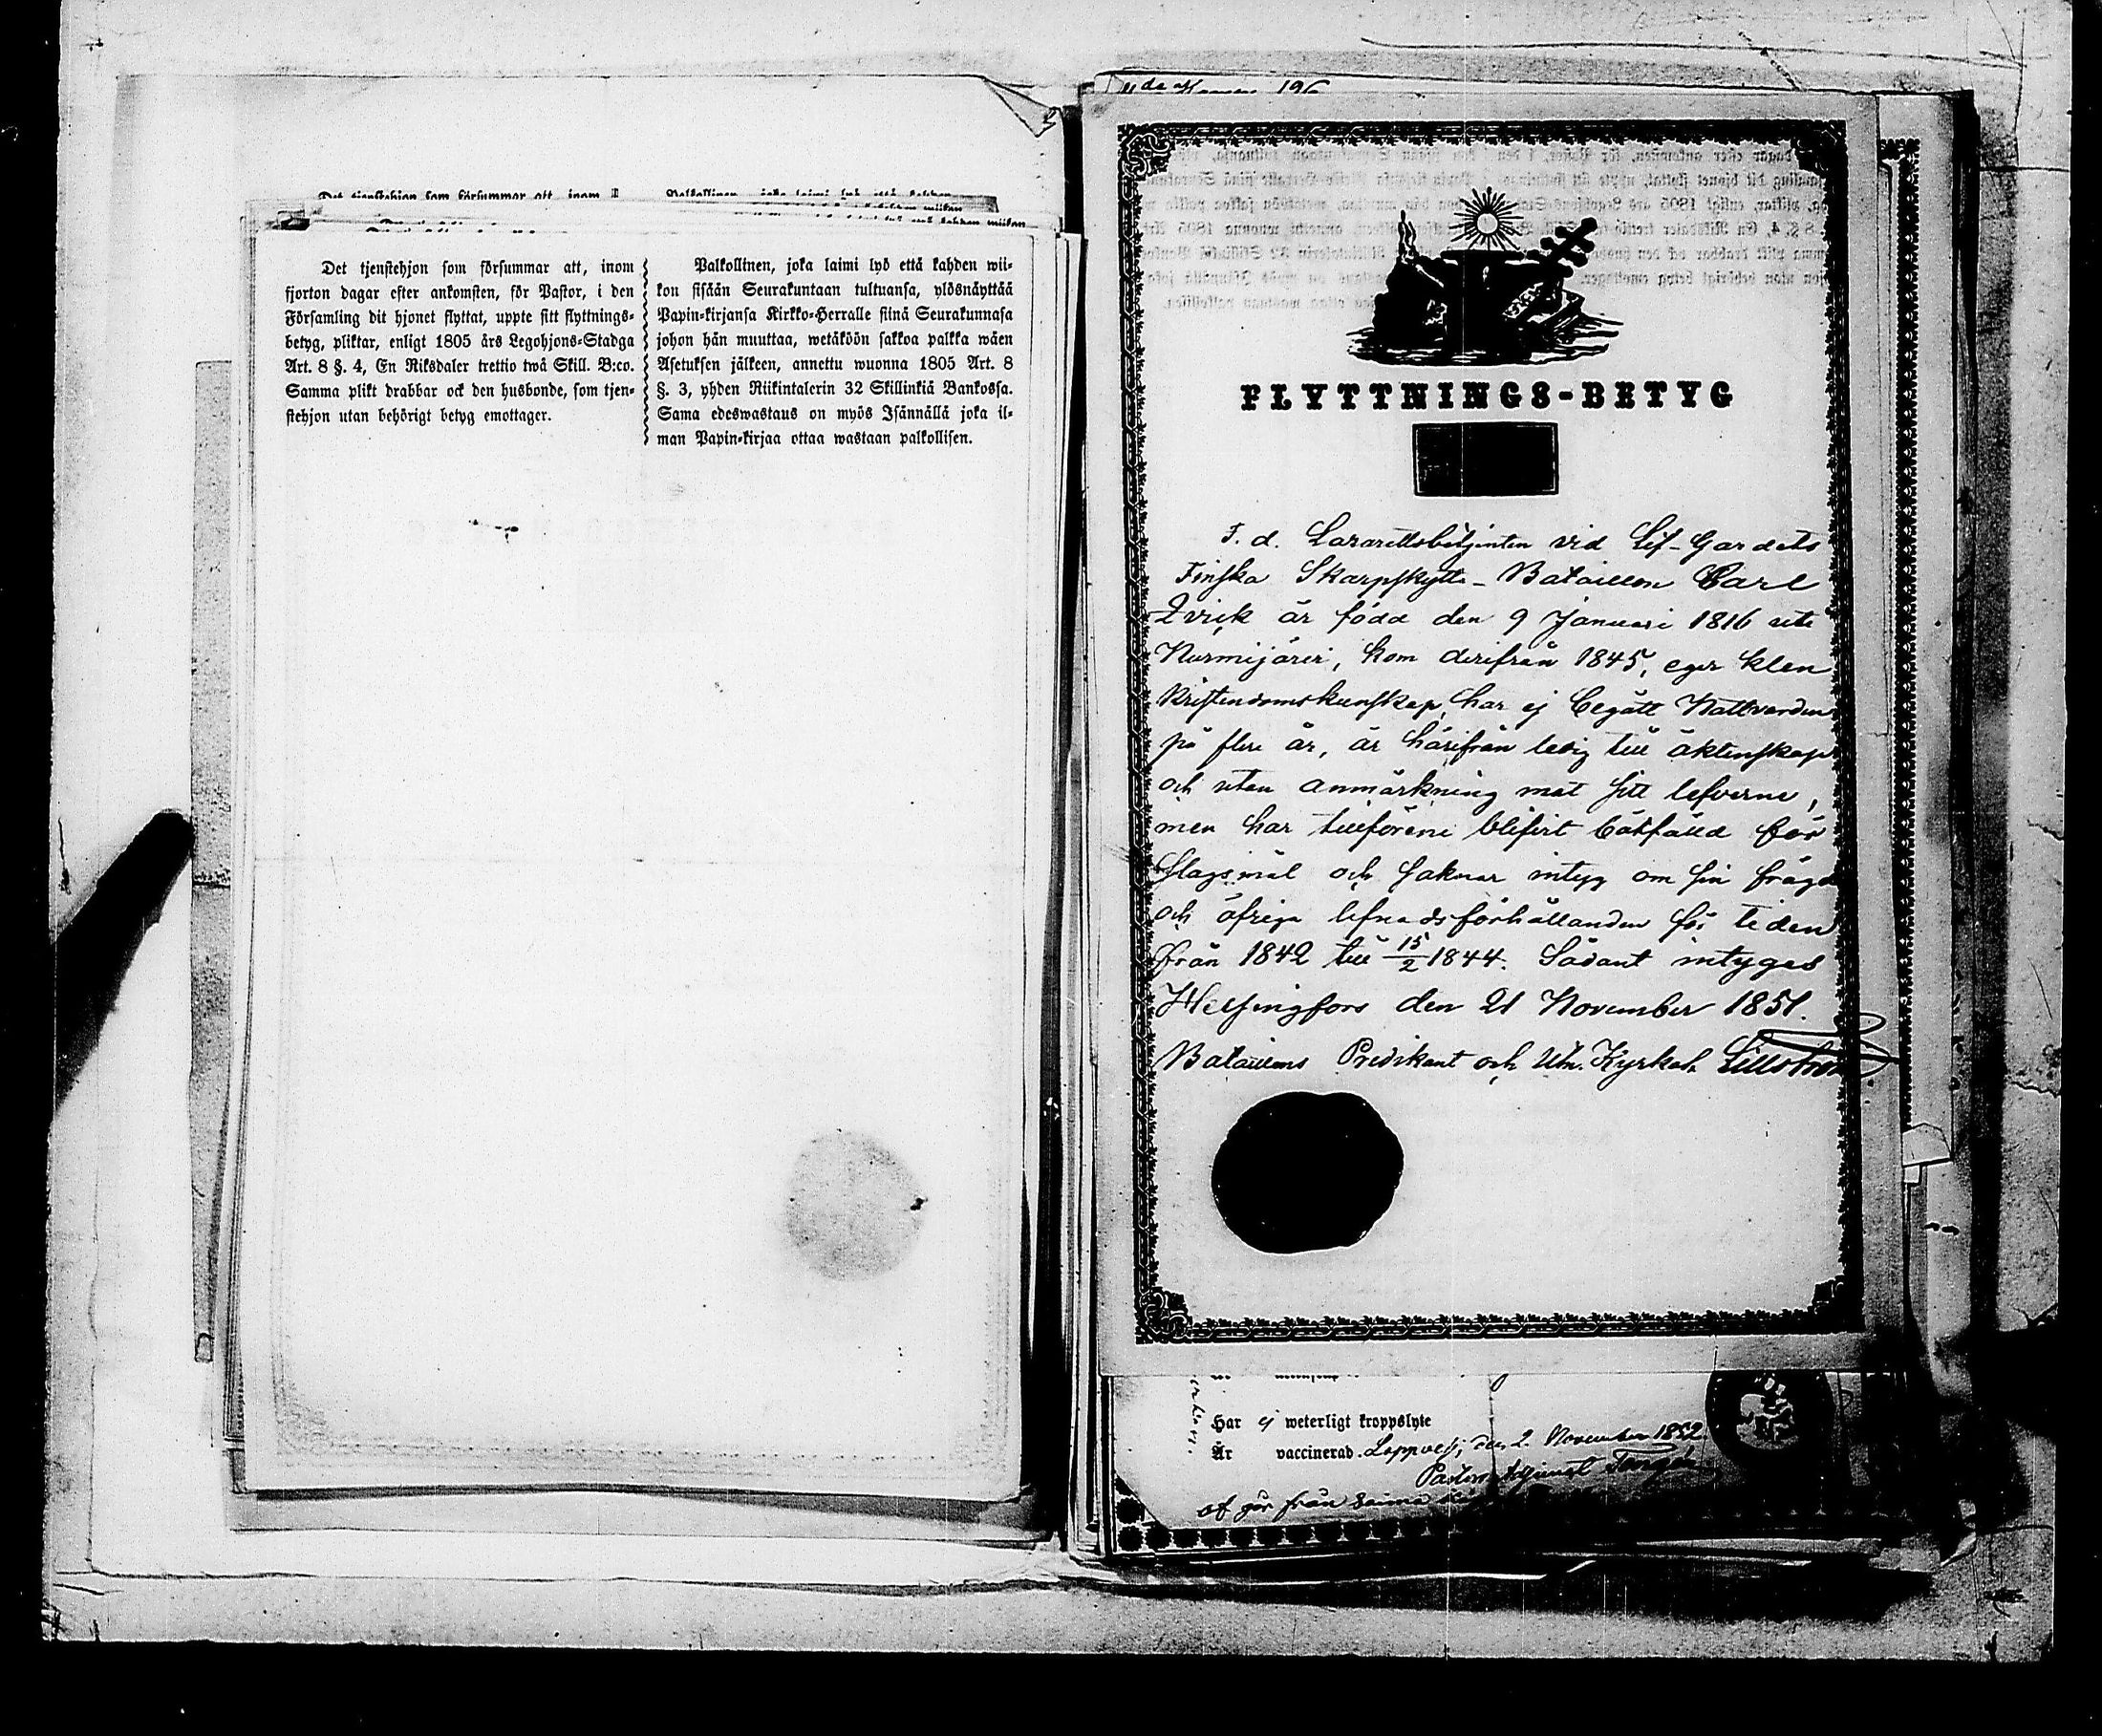 Det tjenstehjon som försummar att, inom
fjorton dagar efter ankomsten, för Pastor, i den
Församling dit hjonet flyttat, uppte sitt flyttnings-
betyg, pliktar, enligt 1805 års Legohjons-Stadga
Art. 8 §. 4, En Riksdaler trettio twå Skill. B:co.
Samma plikt drabbar ock den husbonde, som tjen-
stehjon utan behörigt betyg emottager.
Palkollinen, joka laimi lyö että kahden wii-
kon sisään Seurakuntaan tultuansa, ylösnäyttää
Papin-kirjansa Kirkko-Herralle siinä Seurakunnasa
johon hän muuttaa, wetäköön sakkoa palkka wäen
Asetuksen jälkeen, annettu wuonna 1805 Art. 8
§. 3, yhden Riikintalerin 32 Skillinkiä Bankossa.
Sama edeswastaus on myös Isännällä joka il-
man Papin-kirjaa ottaa wastaan palkollisen.
FLYTTNINGS-BETYG
F. d. Lazarettsbetjenten vid Lif-Gardets
Finska Skarpskytte-Bataillon Carl
Qvick är född den 9 Januari 1816 uti
Nurmijärvi, kom derifrån 1845, eger klen
kristendomskunskap, har ej begått Nattvarden
på flere år, är härifrån ledig till äktenskap
och utan anmärkning mot sitt lefverne,
men har tillförene blifvit bötfälld för
slagsmål och saknar intyg om sin frägd
och öfriga lefnadsförhållanden för tiden
från 1842 till 15/2 1844. Sådant intygas
Helsingfors den 21 November 1851.
Bataillons Predikant och Utn. Kyrkoh. Lillström
Har ej weterligt kroppslyte
Är vaccinerad. Loppvesi, den 2 November 1852
Pastors Adjunct
af går från Saima